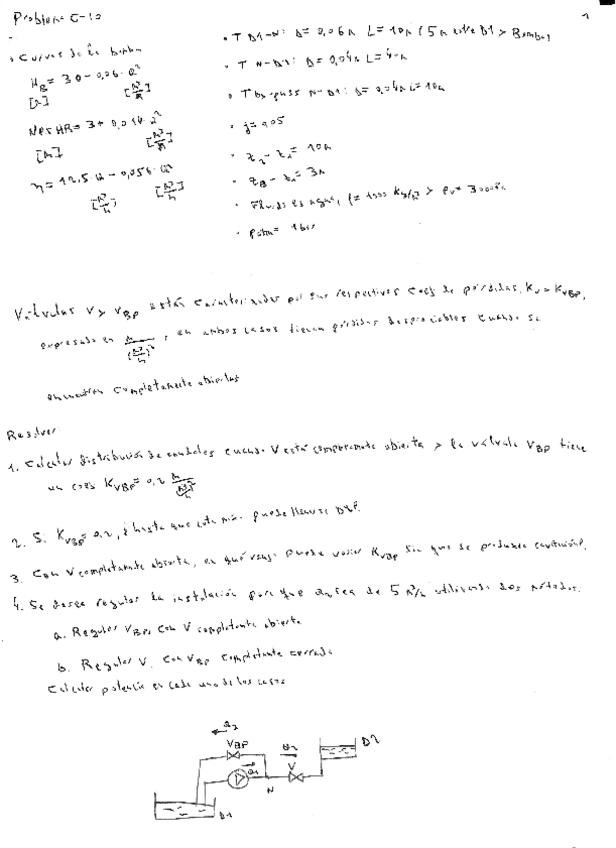 Problema C-10
1
• Curvas de la bomba
H_B = 30 - 0,06·Q²
[m] [m³/h]
NPSHR = 3 + 0,014·Q²
[m] [m³/h]
η = 12,5 Q - 0,056·Q²
[m³/h] [m³/h]
• T D1-N: D = 0,06m L = 10m (5m entre D1 y Bomba)
• T N-D2: D = 0,04m L = 40m
• T by-pass N-D1: D = 0,04m L = 10m
• f = 0,05
• z₂ - z₁ = 10m
• z_B - z₁ = 3m
• Fluido es agua, ρ = 1000 Kg/m³ y Pv = 3000Pa
• Patm = 1bar
Válvulas V y V_BP están caracterizadas por sus respectivos coef de pérdidas, Kv y K_VBP,
expresado en m/(m³/h)², en ambos casos tienen pérdidas despreciables cuando se
encuentran completamente abiertas
Resolver:
1. Calcular distribución de caudales cuando V está completamente abierta y la válvula V_BP tiene
un coef K_VBP = 0,2 m/(m³/h)²
2. Si K_VBP = 0,2, ¿hasta que cota min. puede llevarse D1?
3. Con V completamente abierta, en qué rango puede variar K_VBP sin que se produzca cavitación?
4. Se desea regular la instalación para que Q₂ sea de 5 m³/h utilizando dos métodos.
a. Regular V_BP, con V completamente abierta
b. Regular V, con V_BP completamente cerrada
Calcular potencia en cada uno de los casos
Q₃
V_BP
Q₂
D2
V
Q₁
N
D1